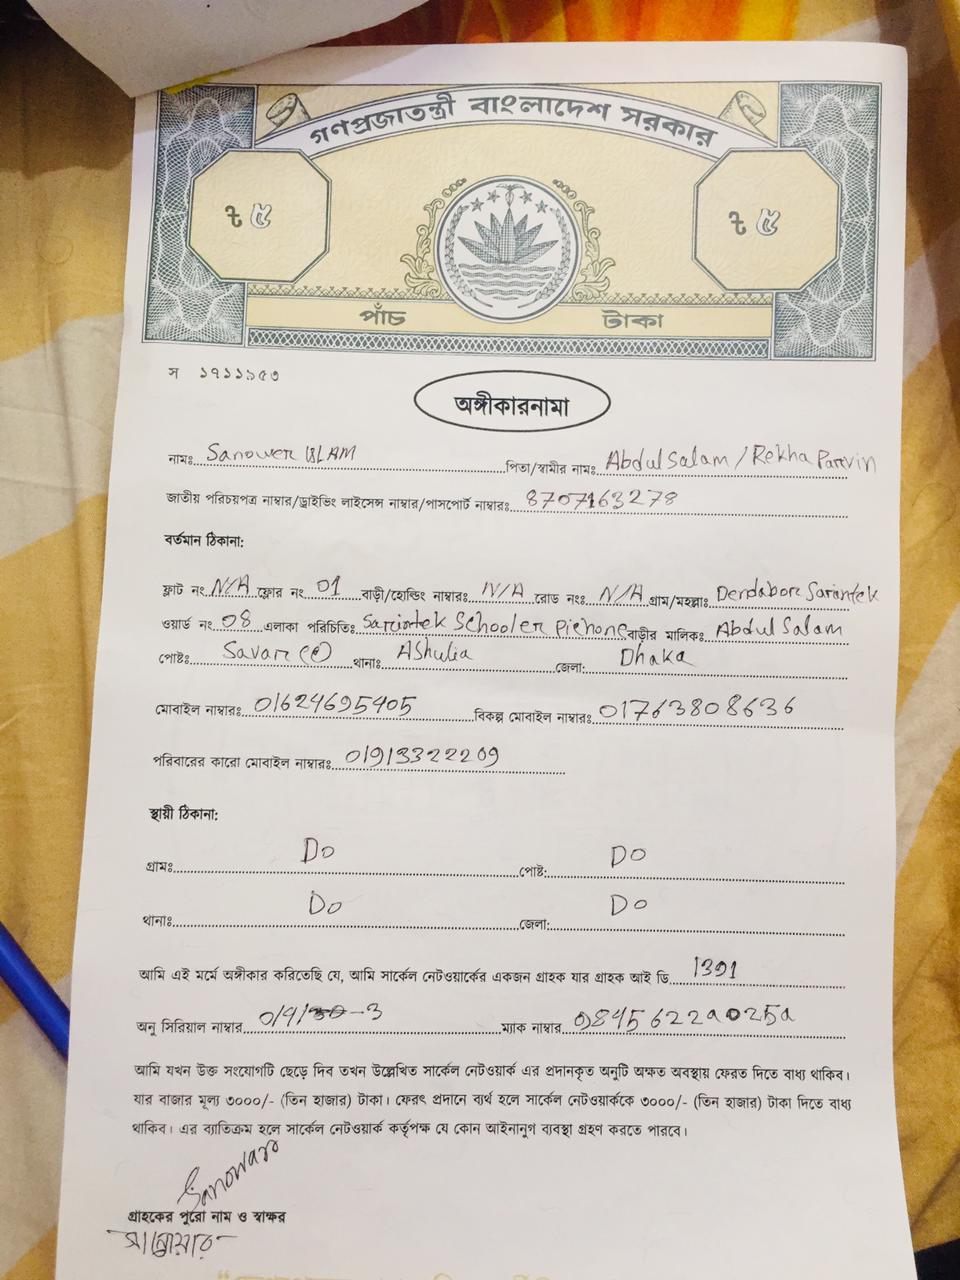 গণপ্রজাতন্ত্রী বাংলাদেশ সরকার
৳ ৫ ৳ ৫
পাঁচ টাকা
স ১৭১১৯৫৩
অঙ্গীকারনামা
নামঃ Sanower ISLAM পিতা/স্বামীর নামঃ Abdul Salam / Rekha Parvin
জাতীয় পরিচয়পত্র নাম্বার/ড্রাইভিং লাইসেন্স নাম্বার/পাসপোর্ট নাম্বারঃ 8707163278
বর্তমান ঠিকানা:
ফ্লাট নং N/A ফ্লোর নং 01 বাড়ী/হোল্ডিং নাম্বারঃ N/A রোড নংঃ N/A গ্রাম/মহল্লাঃ Dendabor Sariontek
ওয়ার্ড নং 08 এলাকা পরিচিতিঃ Sariontek Schooler Pichone বাড়ীর মালিকঃ Abdul Salam
পোষ্টঃ Savar থানাঃ Ashulia জেলা: Dhaka
মোবাইল নাম্বারঃ 01624695405 বিকল্প মোবাইল নাম্বারঃ 01763808636
পরিবারের কারো মোবাইল নাম্বারঃ 01913322209
স্থায়ী ঠিকানা:
গ্রামঃ Do পোষ্ট: Do
থানাঃ Do জেলা: Do
আমি এই মর্মে অঙ্গীকার করিতেছি যে, আমি সার্কেল নেটওয়ার্কের একজন গ্রাহক যার গ্রাহক আই ডি 1391
অনু সিরিয়াল নাম্বার ম্যাক নাম্বার 0845622a025a
আমি যখন উক্ত সংযোগটি ছেড়ে দিব তখন উল্লেখিত সার্কেল নেটওয়ার্ক এর প্রদানকৃত অনুটি অক্ষত অবস্থায় ফেরত দিতে বাধ্য থাকিব।
যার বাজার মূল্য ৩০০০/- (তিন হাজার) টাকা। ফেরৎ প্রদানে ব্যর্থ হলে সার্কেল নেটওয়ার্ককে ৩০০০/- (তিন হাজার) টাকা দিতে বাধ্য
থাকিব। এর ব্যাতিক্রম হলে সার্কেল নেটওয়ার্ক কর্তৃপক্ষ যে কোন আইনানুগ ব্যবস্থা গ্রহণ করতে পারবে।
Sanowar
গ্রাহকের পুরো নাম ও স্বাক্ষর
সানোয়ার